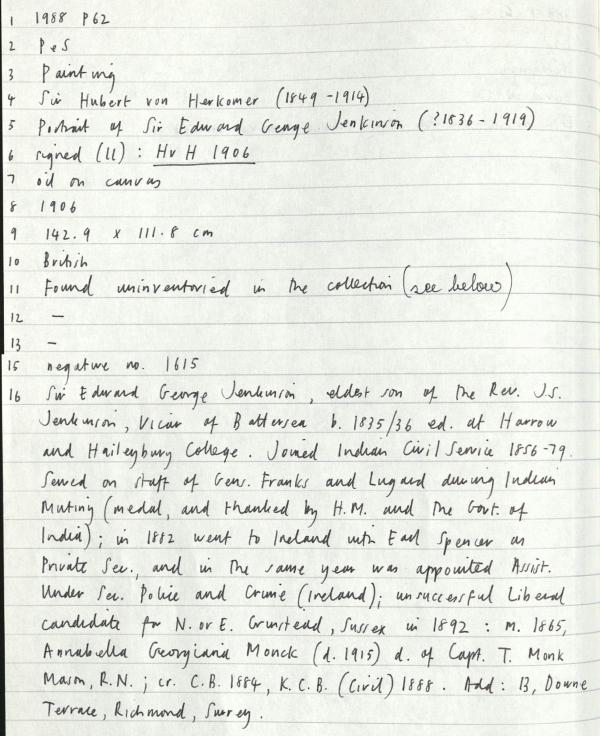 1 1988 P62
2 PeS
3 Painting
4 Sir Hubert von Herkomer (1849-1914)
5 Portrait of Sir Edward George Jenkinson (?1836-1919)
6 signed (ll) : Hv H 1906
7 oil on canvas
8 1906
9 142.9 x 111.8 cm
10 British
11 Found uninventoried in the collection (see below)
12 –
13 –
15 negative no. 1615
16 Sir Edward George Jenkinson, eldest son of the Rev. J.S.
Jenkinson, Vicar of Battersea b. 1835/36 ed. at Harrow
and Haileybury College. Joined Indian Civil Service 1856-79.
Served on staff of Gens. Franks and Lugard during Indian
Mutiny (medal, and thanked by H.M. and the Govt. of
India); in 1882 went to Ireland with Earl Spencer as
Private Sec., and in the same year was appointed Assist.
Under Sec. Police and Crime (Ireland); unsuccessful Liberal
candidate for N. or E. Grinstead, Sussex in 1892 : m. 1865,
Annabella Georgiana Monck (d. 1915) d. of Capt. T. Monk
Mason, R.N. ; cr. C.B. 1884, K.C.B. (Civil) 1888. Add: 13, Downe
Terrace, Richmond, Surrey.